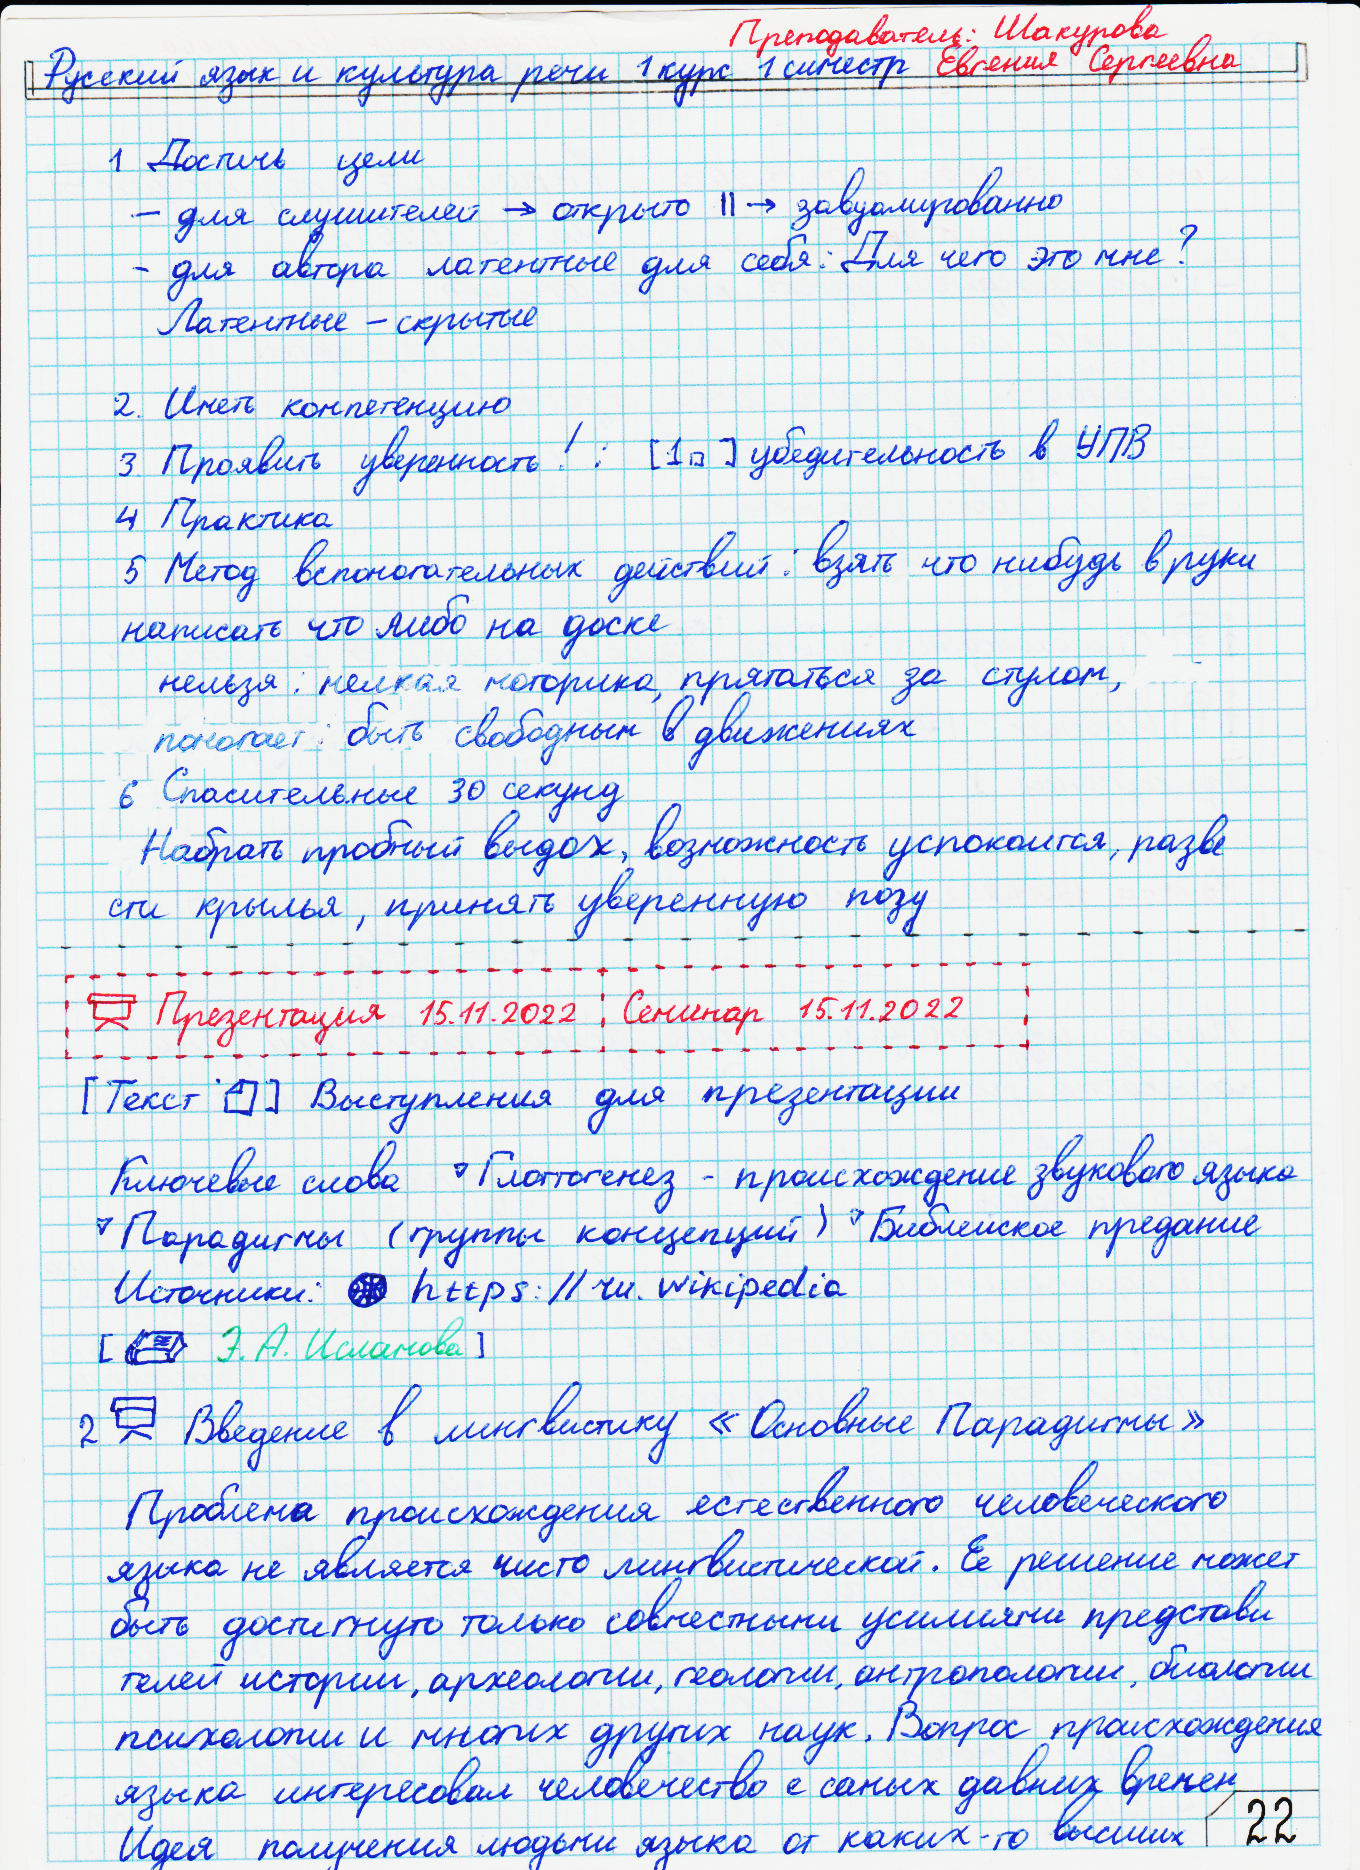 Преподаватель: Шакурова
Русский язык и культура речи 1 курс 1 симестр Евгения Сергеевна
1 Достичь цели
- для слушителей → открыто || → завуалированно
- для автора латентные для себя: Для чего это мне?
Латентные - скрытые
2. Иметь компетенцию
3 Проявить уверенность! : [1п] убедительность в УПВ
4 Практика
5 Метод вспомогательных действий: взять что нибудь в руки
написать что либо на доске
нельзя: мелкая моторика, прятаться за стулом,
помогает: быть свободным в движениях
6 Спасительные 30 секунд
Набрать пробный выдох, возможность успокоится, разве
сти крылья, принять уверенную позу
Презентация 15.11.2022 Семинар 15.11.2022
[Текст] Выступления для презентации
Ключевые слова Глоттогенез - происхождение звукового языка
Парадигмы (группы концепций) Библейское предание
Источники: https://ru.wikipedia
[Э.А. Исламова]
2 Введение в лингвистику «Основные Парадигмы»
Проблема происхождения естественного человеческого
языка не является чисто лингвистической. Ее решение может
быть достигнуто только совместными усилиями представи
телей истории, археологии, геологии, антропологии, биологии
психологии и многих других наук. Вопрос происхождения
языка интересовал человечество с самых давних времен
Идея получения людьми языка от каких-то высших
22